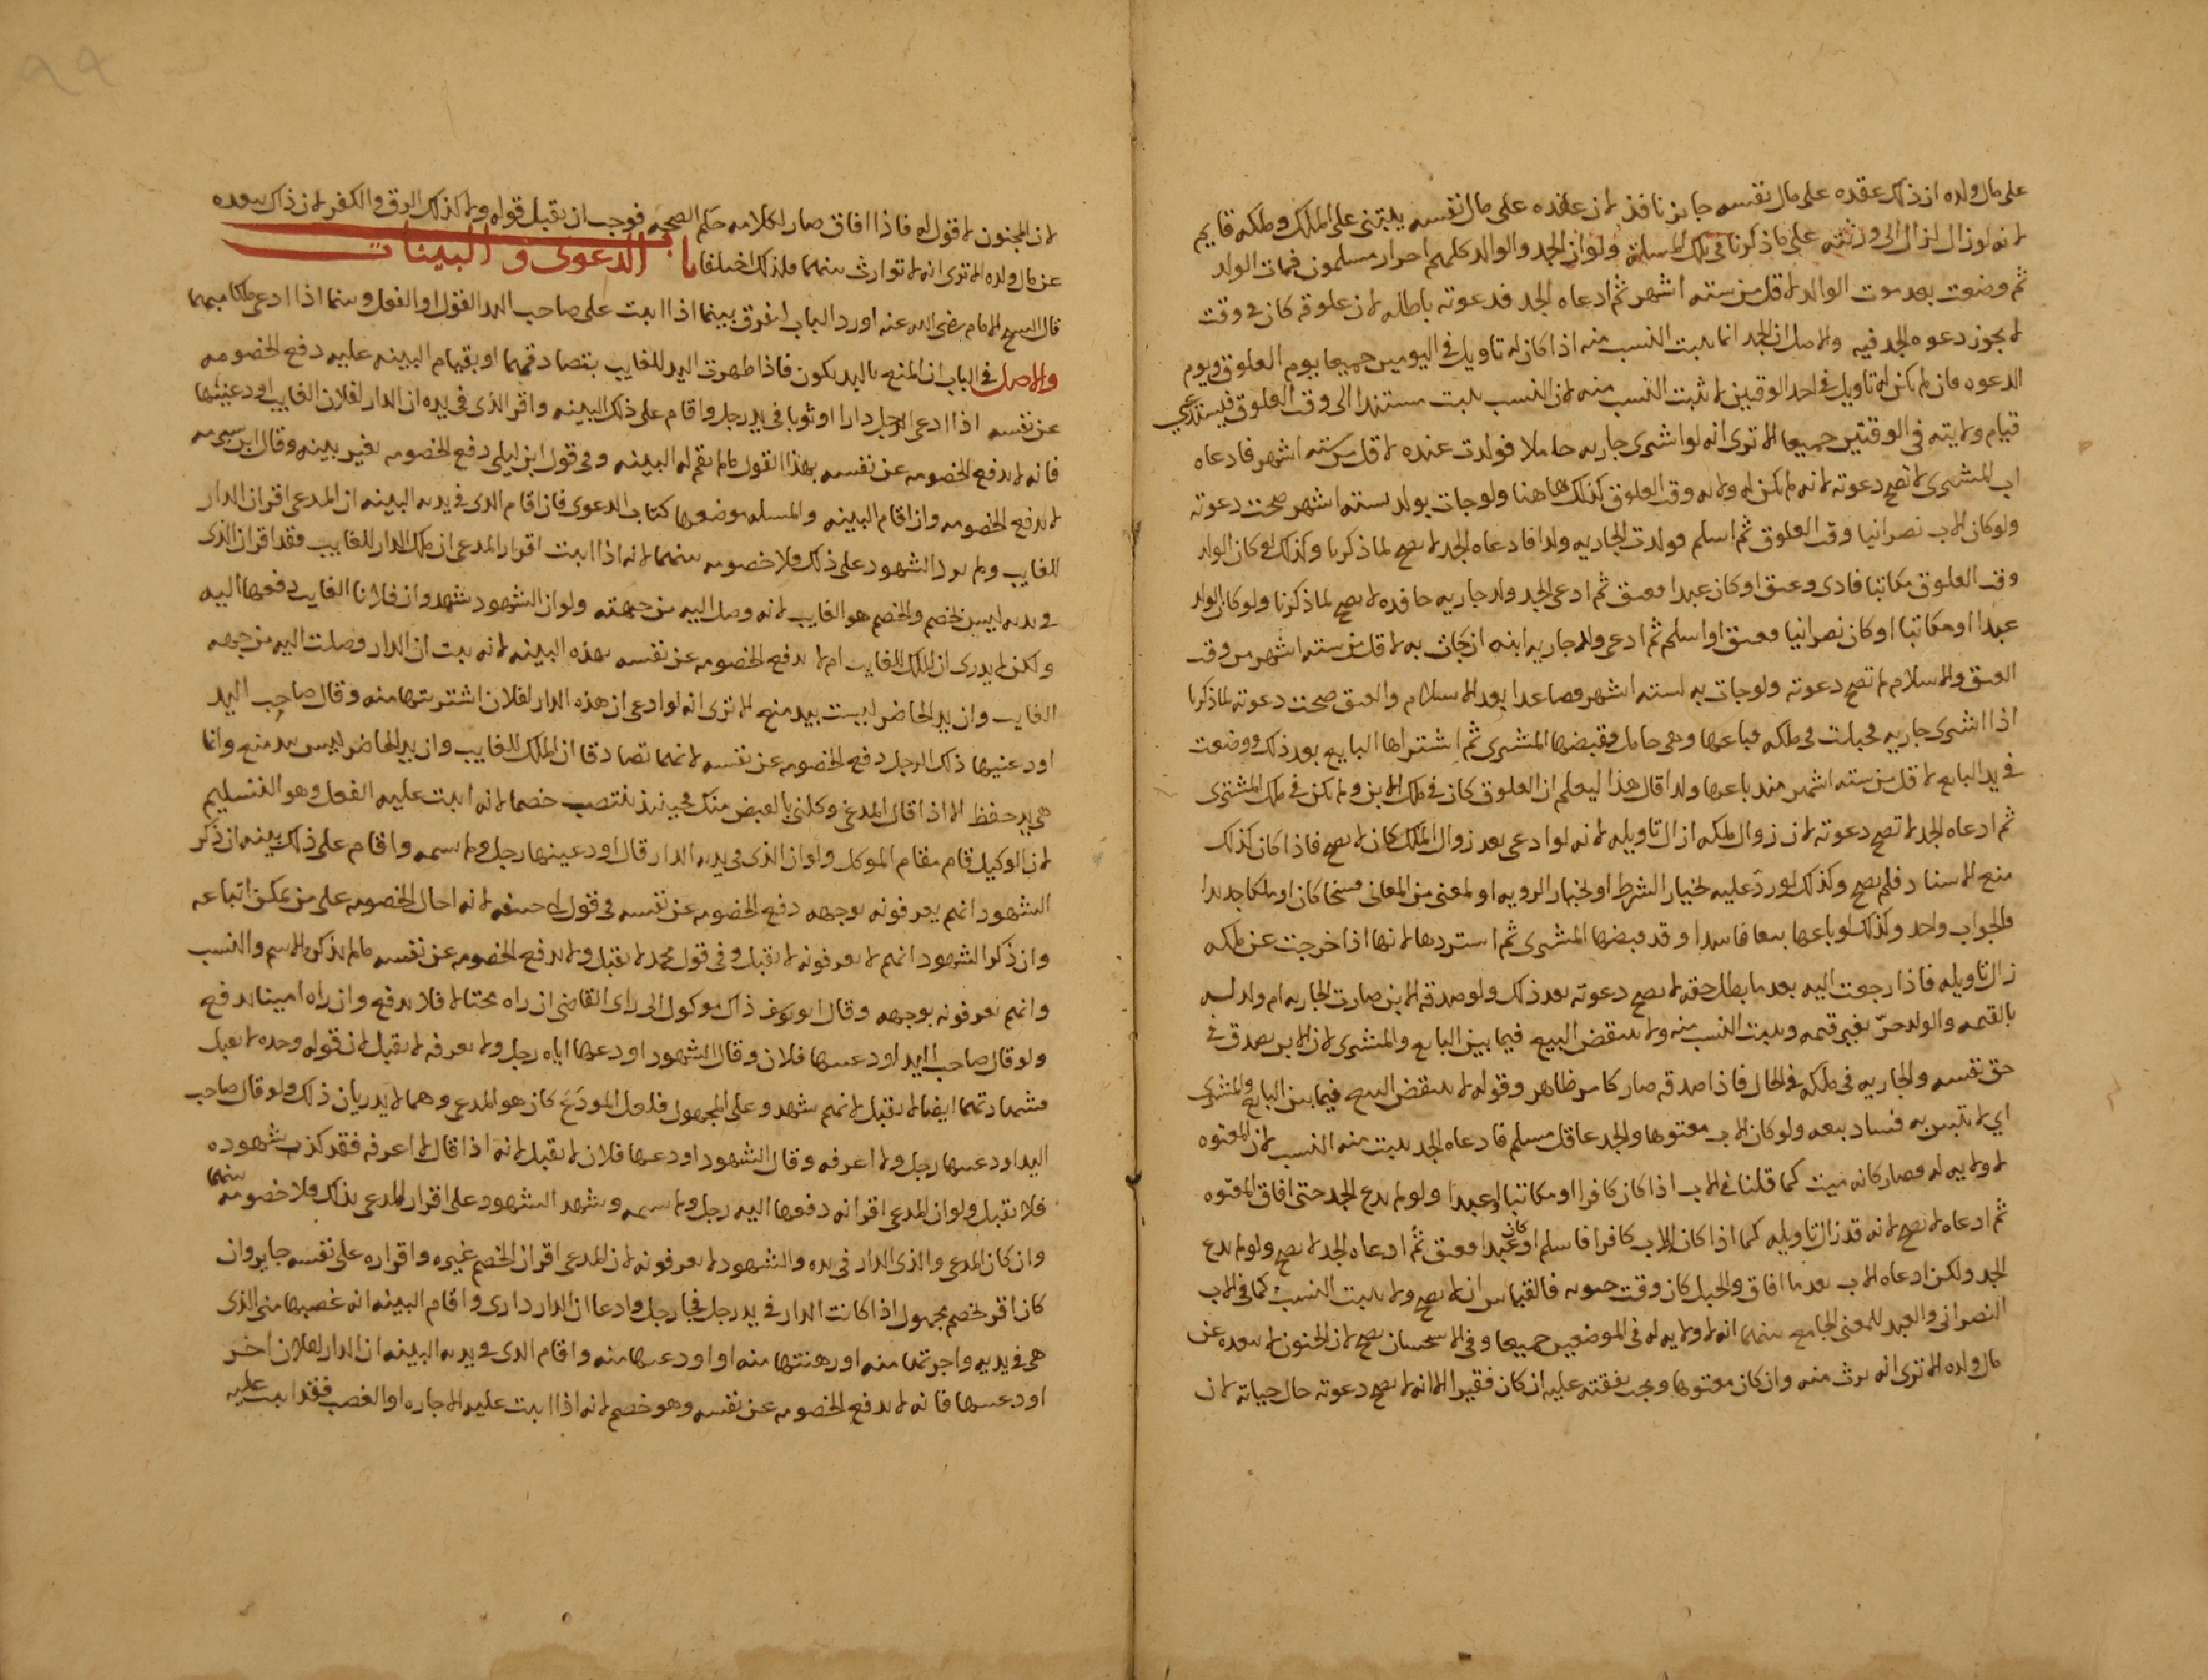 على مال ولده اذ ذلك عقده على مال نفسه جايز نافذ لان عقده على مال نفسه يبتنى على الملك وملكه قايم
لانه لو زال انما زال الى ورثته على ما ذكرنا فى تلك المسلة ولو ان الجد والوالد كلهم احرار مسلمون فمات الوالد
ثم وضعت بعد موت الوالد لاقل من ستة اشهر ثم ادعاه الجد فدعوته باطله لان علوقه كان فى وقت
لا يجوز دعوه الجد فيه والاصل ان الجد انما يثبت النسب منه اذا كان له تاويل فى اليومين جميعا يوم العلوق ويوم
الدعوه فان لم يكن له تاويل فى احد الوقتين لا يثبت النسب منه لان النسب يثبت مستندا الى وقت العلوق فيستدعي
قيام ولايته فى الوقتين جميعا الا ترى انه لو اشترى جاريه حاملا فولدت عنده لاقل من ستة اشهر فادعاه
اب المشترى لا تصح دعوته لانه لم يكن له ولايه وقت العلوق كذلك هاهنا ولو جات بولد لستة اشهر صحت دعوته
ولو كان الاب نصرانيا وقت العلوق ثم اسلم فولدت الجاريه ولدا فادعاه الجد لا يصح لما ذكرنا وكذلك لو كان الوالد
وقت العلوق مكاتبا فادى وعتق او كان عبدا فعتق ثم ادعى الجد ولد جاريه حافده لا يصح لما ذكرنا ولو كان الولد
عبدا او مكاتبا او كان نصرانيا فعتق او اسلم ثم ادعى ولد جاريه ابنه ان جات به لاقل من ستة اشهر من وقت
العتق والاسلام لا تصح دعوته ولو جات به لستة اشهر فصاعدا بعد الاسلام والعتق صحت دعوته لما ذكرنا
اذا اشترى جاريه فحبلت فى ملكه فباعها وهى حامل وقبضها المشترى ثم اشتراها البايع بعد ذلك ووضعت
فى يد البايع لاقل من ستة اشهر منذ باعها ولدا قال هذا ليعلم ان العلوق كان فى ملك الابن ولم يكن فى ملك المشترى
ثم ادعاه الجد لا تصح دعوته لان زوال ملكه ازال تاويله لانه لو ادعى بعد زوال الملك كان لا يصح فاذا كان كذلك
منع الاسناد فلم يصح وكذلك لو رد عليه بخيار الشرط او بخيار الرويه او لمعنى من المعانى فسخا كان او ملكا جديدا
فالجواب واحد وكذلك لو باعها بيعا فاسدا وقد قبضها المشترى ثم استردها لانها اذا خرجت عن ملكه
زال تاويله فاذا رجعت اليه بعد ما بطل حقه لا يصح دعوته بعد ذلك ولو صدقه الابن صارت الجاريه ام ولد له
بالقيمه والولد حرّ بغير قيمه ويثبت النسب منه ولا ينتقض البيع فيما بين البايع والمشترى لان الابن يصدق فى
حق نفسه والجاريه فى ملكه فى الحال فاذا صدقه صار كامر ظاهر وقوله لا ينتقض البيع فيما بين البايع والمشترى
اي لا يتبين به فساد بيعه ولو كان الاب معتوها والجد عاقل مسلم فادعاه الجد يثبت منه النسب لان المعتوه
لا ولايه له فصار كانه ميت كما قلنا فى الاب اذا كان كافرا او مكاتبا او عبدا ولو لم يدع الجد حتى افاق المعتوه
ثم ادعاه لا تصح لانه قد زال تاويله كما اذا كان الاب كافرا فاسلم او كان عبدا فعتق ثم ادعاه الجد لا يصح ولو لم يدع
الجد ولكن ادعاه الاب بعد ما افاق والحبل كان وقت جنونه فالقياس ان لا يصح ولا يثبت النسب كما فى الاب
النصرانى والعبد للمعنى الجامع بينهما انه لا ولايه له فى الموضعين جميعا وفى الاستحسان يصح لان الجنون لا يبعده عن
مال ولده الا ترى انه يرث منه وان كان معتوها ويجب نفقته عليه ان كان فقيرا الا انه لا يصح دعوته حال حياته لان
لان المجنون لا قول له فاذا افاق صار لكلامه حكم الصحه فوجب ان يقبل قوله ولا كذلك الرق والكفر لان ذاك يبعده
عن مال ولده الا ترى انه لا توارث بينهما فلذلك اختلفا باب الدعوى والبينات
قال الشيخ الامام رضى الله عنه اورد الباب لنفرق بينما اذا اثبت على صاحب اليد القول او الفعل وبينما اذا ادعى ملكا مبهما
والاصل فى الباب ان المنع باليد يكون فاذا ظهرت اليد للغايب بتصادقهما او بقيام البينه عليه دفع الخصومه
عن نفسه اذا ادعى الرجل دارا او ثوبا فى يد رجل واقام على ذلك البينه واقر الذى فى يده ان الدار لفلان الغايب اودعنيها
فانه لا يدفع الخصومه عن نفسه بهذا القول ما لم تقم له البينه وفى قول ابن ابى ليلى دفع الخصومه بغير بينه وقال ابن شبرمه
لا يدفع الخصومه وان اقام البينه والمسله موضعها كتاب الدعوى فان اقام الذى فى يديه البينه ان المدعى اقر ان الدار
للغايب ولم يزد الشهود على ذلك فلا خصومه بينهما لانه اذا اثبت اقرار المدعى ان ملك الدار للغايب فقد اقر ان الذى
فى يديه ليس بخصم والخصم هو الغايب لانه وصل اليه من جهته ولو ان الشهود شهدوا ان فلانا الغايب دفعها اليه
ولكن لا يدرى ان الملك للغايب ام لا يدفع الخصومه عن نفسه بهذه البينه لانه يثبت ان الدار وصلت اليه من جهه
الغايب وان يد الحاضر ليست بيد منع الا ترى انه لو ادعى ان هذه الدار لفلان اشتريتها منه وقال صاحب اليد
اودعنيها ذلك الرجل دفع الخصومه عن نفسه لانهما تصادقا ان الملك للغايب وان يد الحاضر ليس يد منع وانما
هى يد حفظ الا اذا قال المدعى وكلنى بالقبض منك فحينيذ ينتصب خصما لانه اثبت عليه الفعل وهو التسليم
لان الوكيل قام مقام الموكل ولو ان الذى فى يديه الدار قال اودعنيها رجل ولم يسمه واقام على ذلك بينه ان ذكر
الشهود انهم يعرفونه بوجهه دفع الخصومه عن نفسه فى قول ابى حنيفه لانه احال الخصومه على من يمكن اتباعه
وان ذكر الشهود انهم لا يعرفونه لا يقبل وفى قول محمد لا يقبل ولا يدفع الخصومه عن نفسه ما لم يذكروا الاسم والنسب
وانهم يعرفونه بوجهه وقال ابو يوسف ذاك موكول الى راى القاضى ان راه محتالا فلا يدفع وان راه امينا يدفع
ولو قال صاحب اليد اودعنيها فلان وقال الشهود اودعها اياه رجل ولا نعرفه لا يقبل لان قوله وحده لا يقبل
وشهادتهما ايضا لا يقبل لانهم شهدوا على المجهول فلعل المودَع كان هو المدعى وهما لا يدريان ذلك ولو قال صاحب
اليد اودعنيها رجل ولا اعرفه وقال الشهود اودعها فلان لا يقبل لانه اذا قال لا اعرفه فقد كذب شهوده
فلا يقبل ولو ان المدعى اقر انه دفعها اليه رجل ولم يسمه وشهد الشهود على اقرار المدعى بذلك فلا خصومه بينهما
وان كان المدعى والذى الدار فى يده والشهود لا يعرفونه لان المدعى اقر ان الخصم غيره واقراره على نفسه جايز وان
كان اقر لخصم مجهول اذا كانت الدار فى يد رجل فجا رجل وادعا ان الدار دارى واقام البينه انه غصبها منى الذى
هى فى يديه واجرتها منه او رهنتها منه او اودعتها منه واقام الذى فى يديه البينه ان الدار لفلان اخر
اودعنيها فانه لا يدفع الخصومه عن نفسه وهو خصم لانه اذا اثبت عليه الاجاره او الغصب فقد اثبت عليه